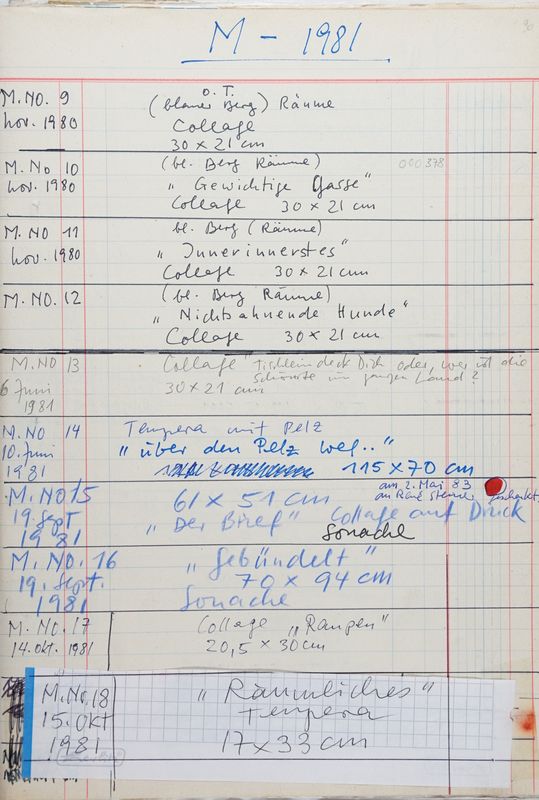 M - 1981
M.NO. 9
nov. 1980
o. T.
(blauer Berg) Räume
Collage
30 x 21 cm
M. No 10
nov. 1980
(bl. Berg Räume)
"Gewichtige Gasse"
Collage 30 x 21 cm
000378
M. NO 11
nov. 1980
bl. Berg (Räume)
"Innerinnerstes"
Collage 30 x 21 cm
M. NO. 12
(bl. Berg Räume)
"Nichtsahnende Hunde"
Collage 30 x 21 cm
M. NO 13
6 Juni
1981
Collage "Tischlein deck Dich oder, wer ist die
Schönste im ganzen Land?
30 x 21 cm
M. NO 14
10. Juni
1981
Tempera mit Pelz
"über den Pelz weg.."
115 x 70 cm
M. NO 15
19. Sept
1981
61 x 51 cm
am 2. Mai 83
an René geschenkt
"Der Brief" Collage auf Druck
Gouache
M. NO. 16
19. Sept.
1981
"Gebündelt"
70 x 94 cm
Gouache
M. NO. 17
14. Okt. 1981
Collage "Raupen"
20,5 x 30 cm
M. No. 18
15. OKT
1981
"Räumliches"
Tempera
17 x 33 cm